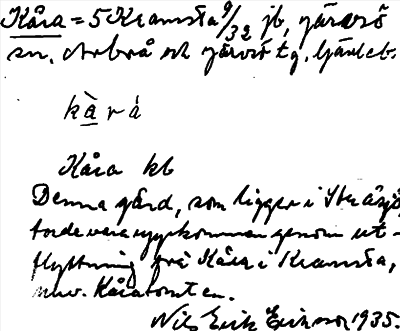 Kåra = 5 Kramsta 9/32 jb, Järvsö
sn, Arbrå och Järvsö tg, Gävleb.
kà̱rá
Kåra kb
Denna gård, som ligger i Stråsjö,
torde vara uppkommen genom ut-
flyttning från Kåra i Kramsta,
nuv. Kåratomten.
Nils Erik Eriksson 1935.